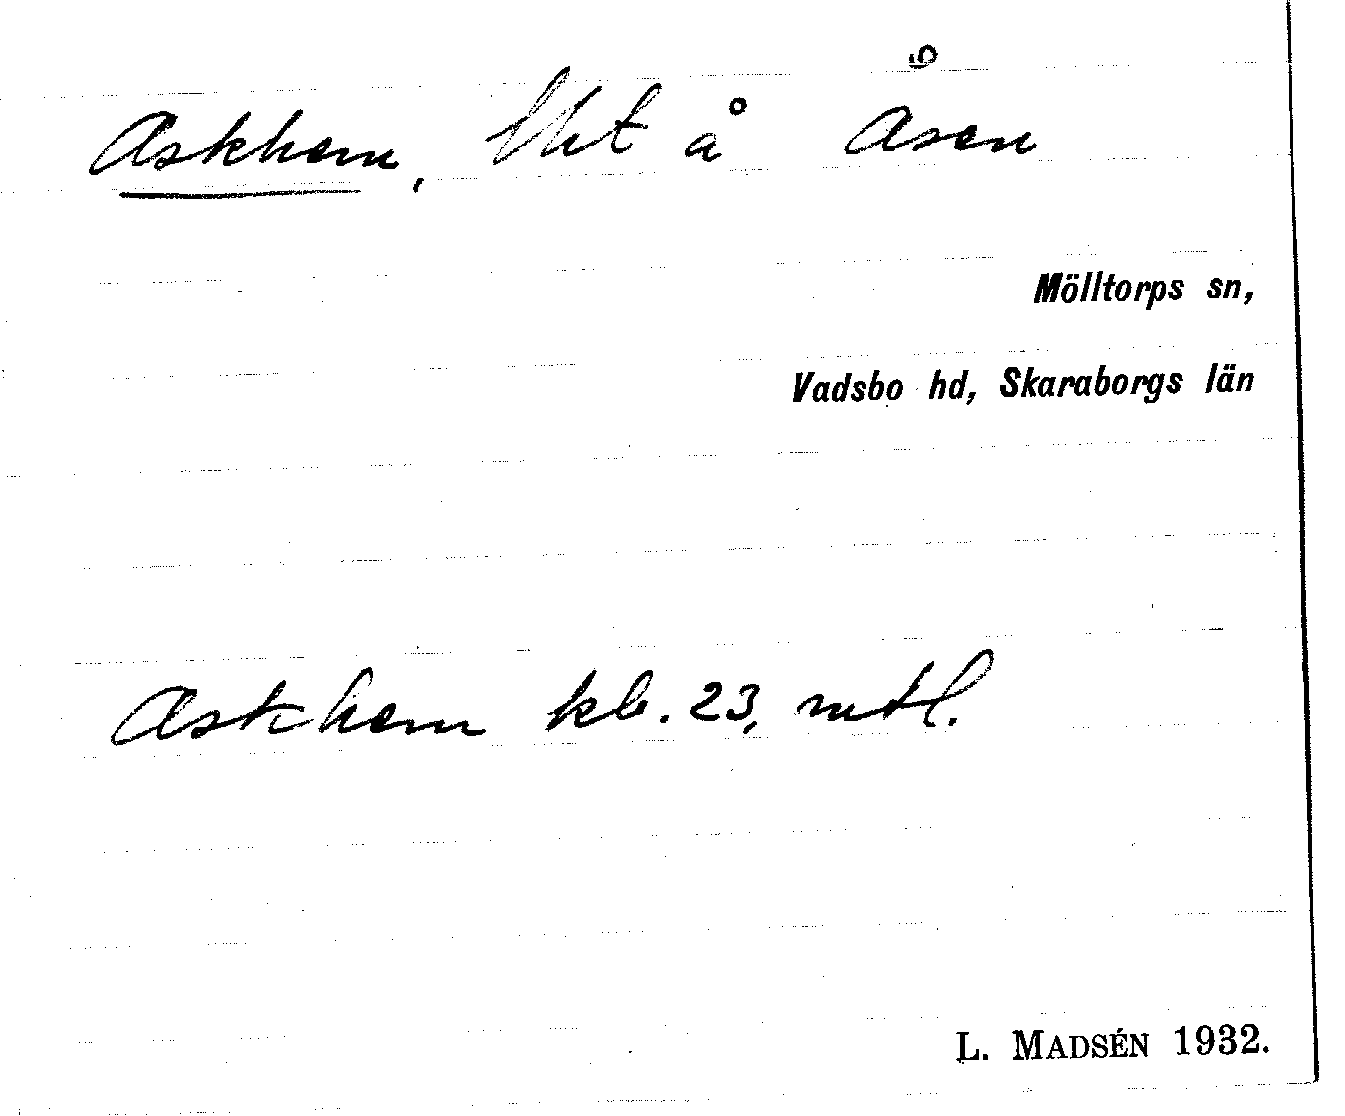 Askhem, lht å Åsen
Mölltorps sn,
Vadsbo hd, Skaraborgs län
Askhem kb. 23, mtl.
L. MADSÉN 1932.